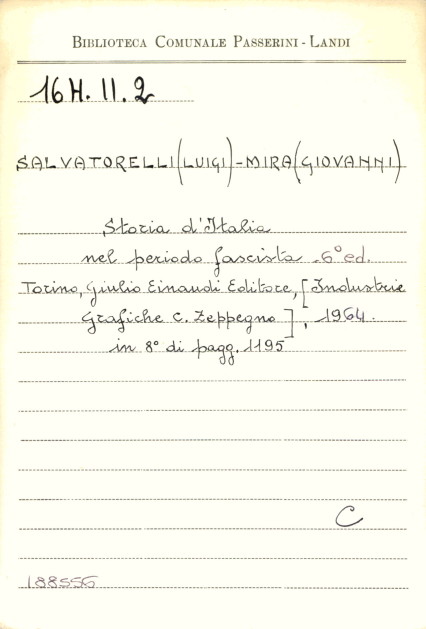 BIBLIOTECA COMUNALE PASSERINI - LANDI
16 H. II. 2
SALVATORELLI (LUIGI) - MIRA (GIOVANNI)
Storia d'Italia
nel periodo fascista. 6° ed.
Torino, Giulio Einaudi Editore, [Industrie
Grafiche C. Zeppegno], 1964.
in 8° di pagg. 1195
C
188556